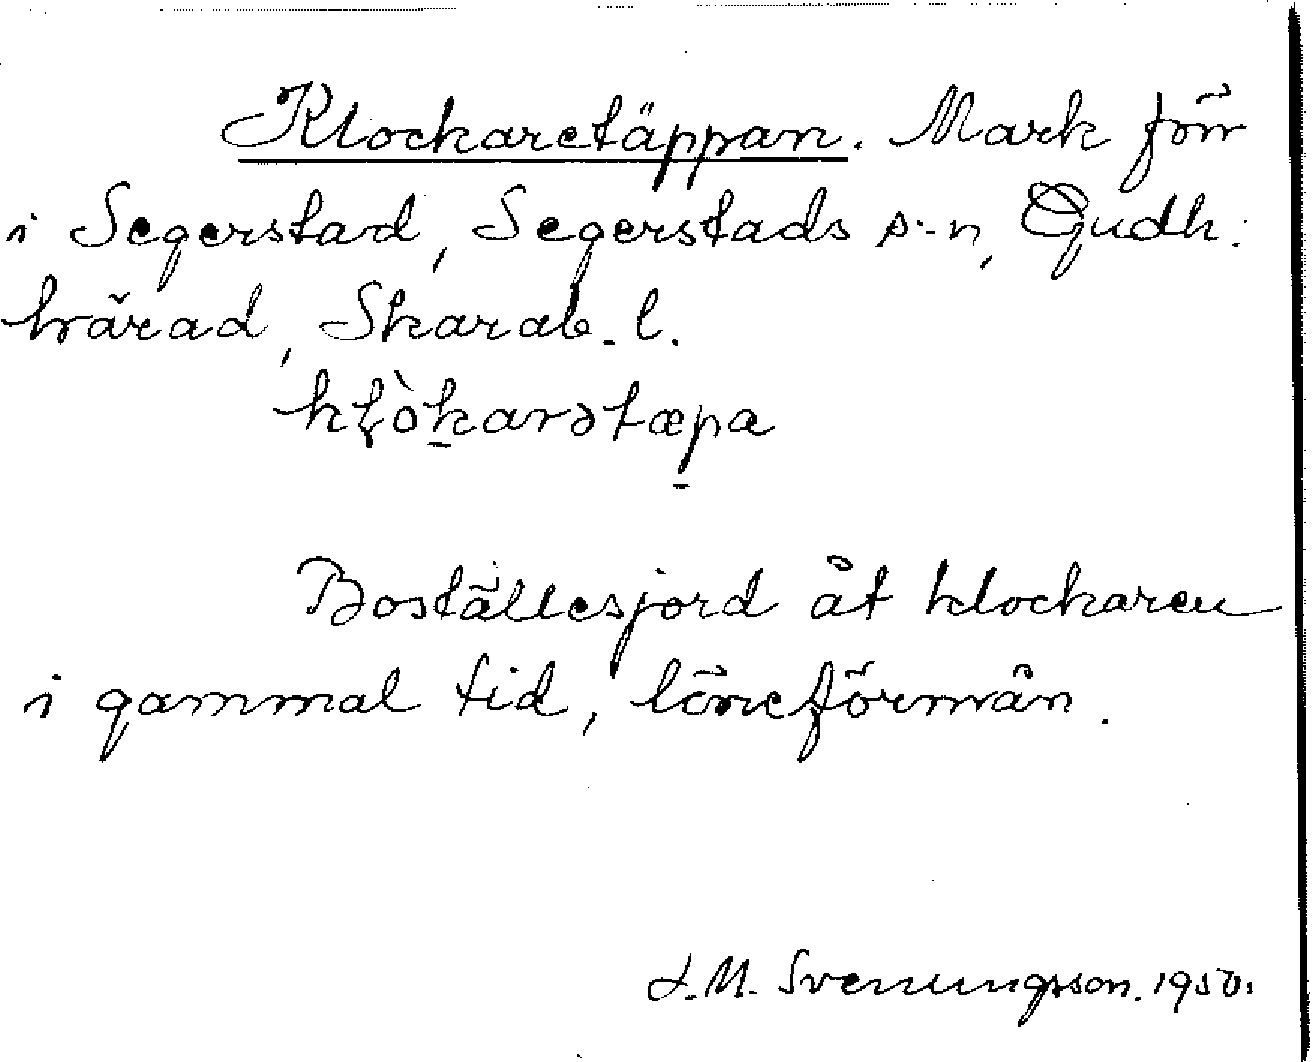 Klockaretäppan. Mark förr
i Segerstad, Segerstads s:n, Gudh:
härad, Skarab. l.
Boställesjord åt klockaren
i gammal tid, löneförmån.
S. M. Svenungsson. 1950.